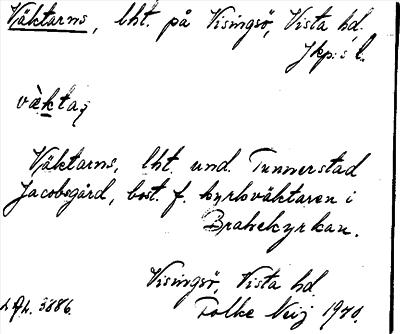 Väktarns, lht. på Visingsö, Vista hd.
Jkp:s l.
vàktaṇ
Väktarns, lht. und. Tunnerstad
Jacobsgård, bost. f. kyrkväktaren i
Brahekyrkan.
Visingsö, Vista hd
Folke Neij 1970.